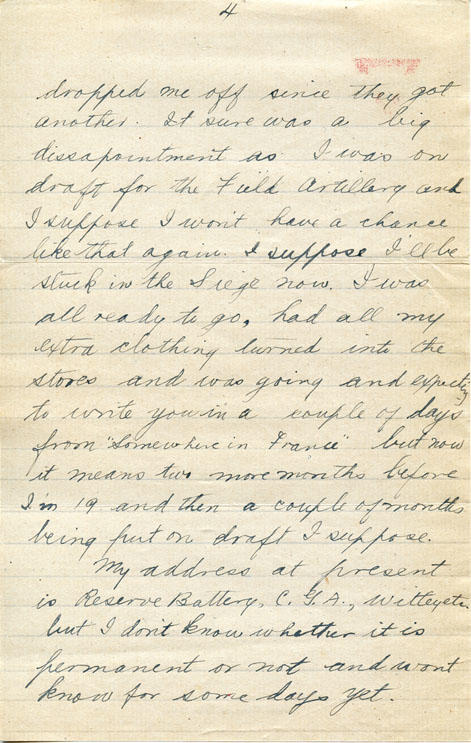 4
dropped me off since they got
another. It sure was a big
dissapointment as I was on
draft for the Field Artillery and
I suppose I won't have a chance
like that again. I suppose I'll be
stuck in the Siege now. I was
all ready to go, had all my
extra clothing turned into the
stores and was going and expecting
to write you in a couple of days
from "Somewhere in France" but now
it means two more months before
I'm 19 and then a couple of months
being put on draft I suppose.
My address at present
is Reserve Battery, C. G. A., Witley etc.
but I don't know whether it is
permanent or not and wont
know for some days yet.